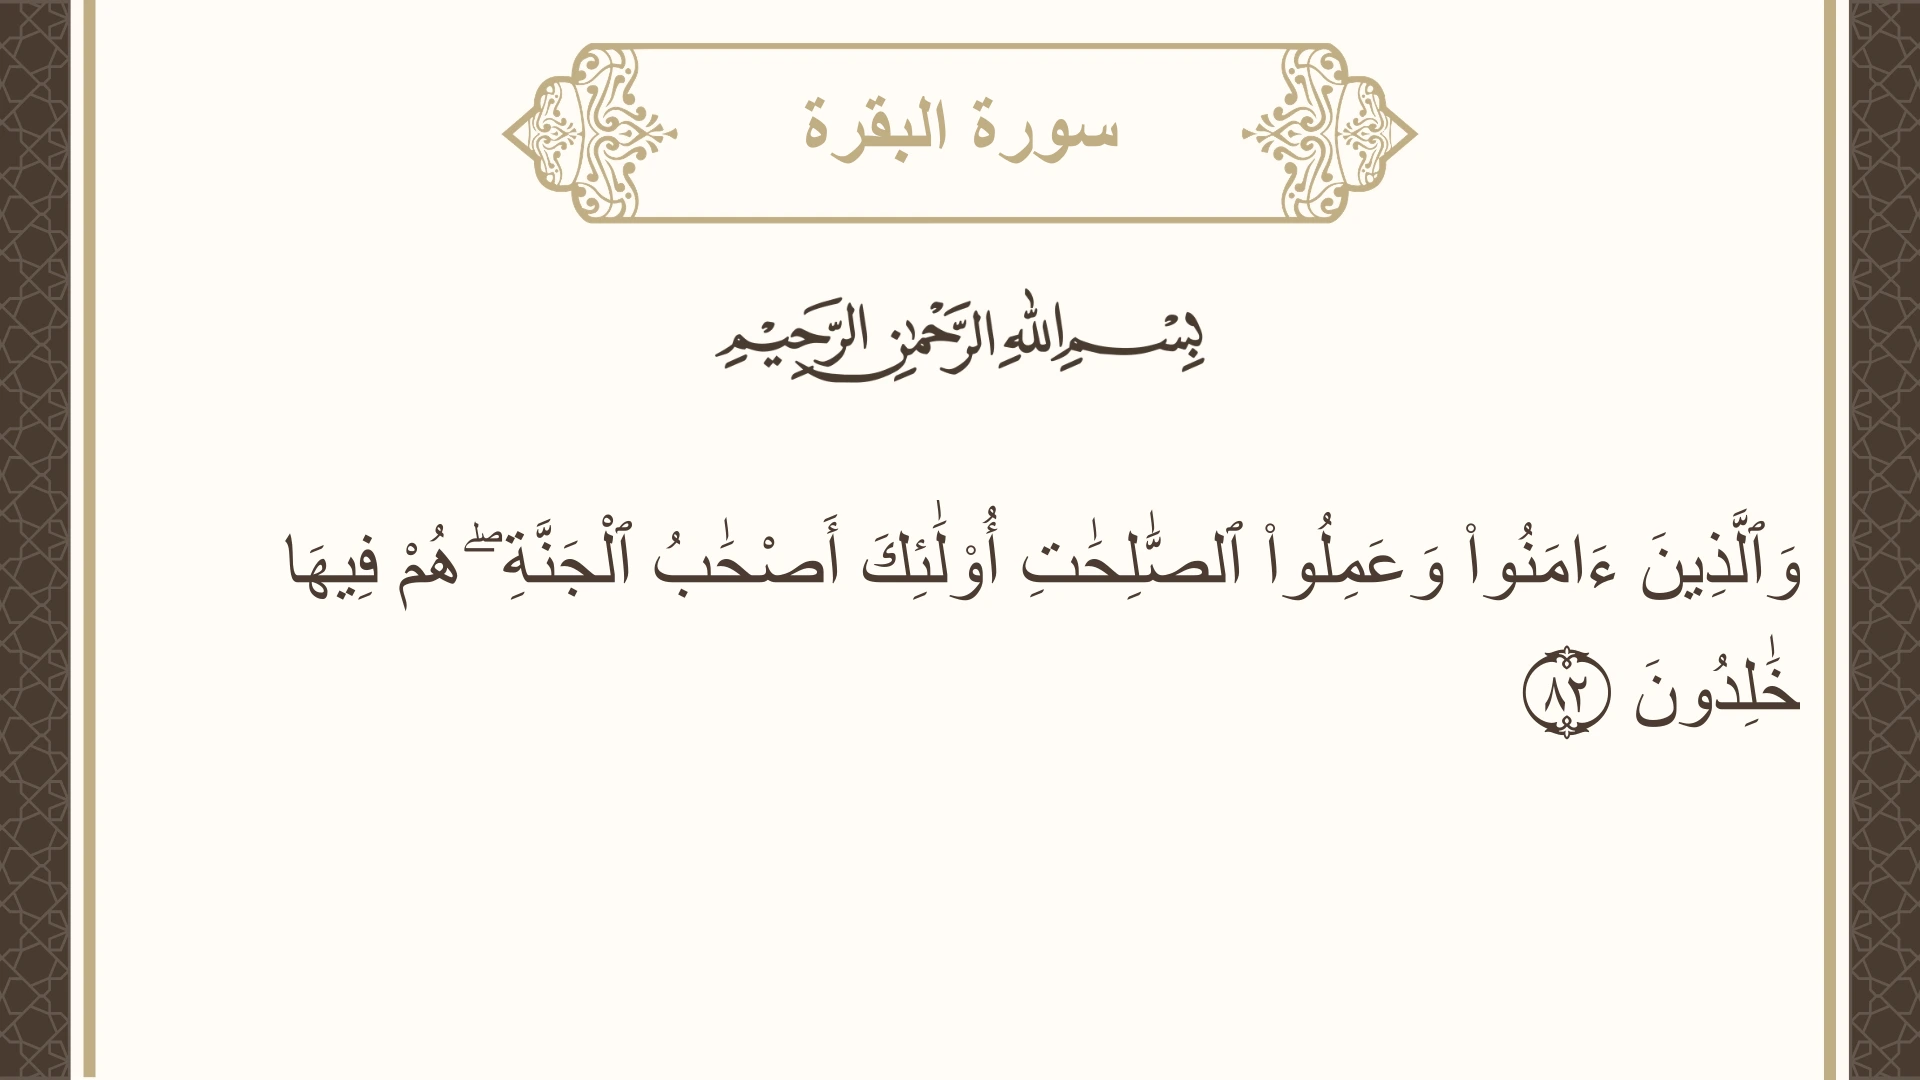 سورة البقرة
بِسْمِ اللهِ الرَّحْمٰنِ الرَّحِيْمِ
وَٱلَّذِينَ ءَامَنُوا۟ وَعَمِلُوا۟ ٱلصَّٰلِحَٰتِ أُو۟لَٰٓئِكَ أَصْحَٰبُ ٱلْجَنَّةِ ۖ هُمْ فِيهَا
خَٰلِدُونَ ٨٢